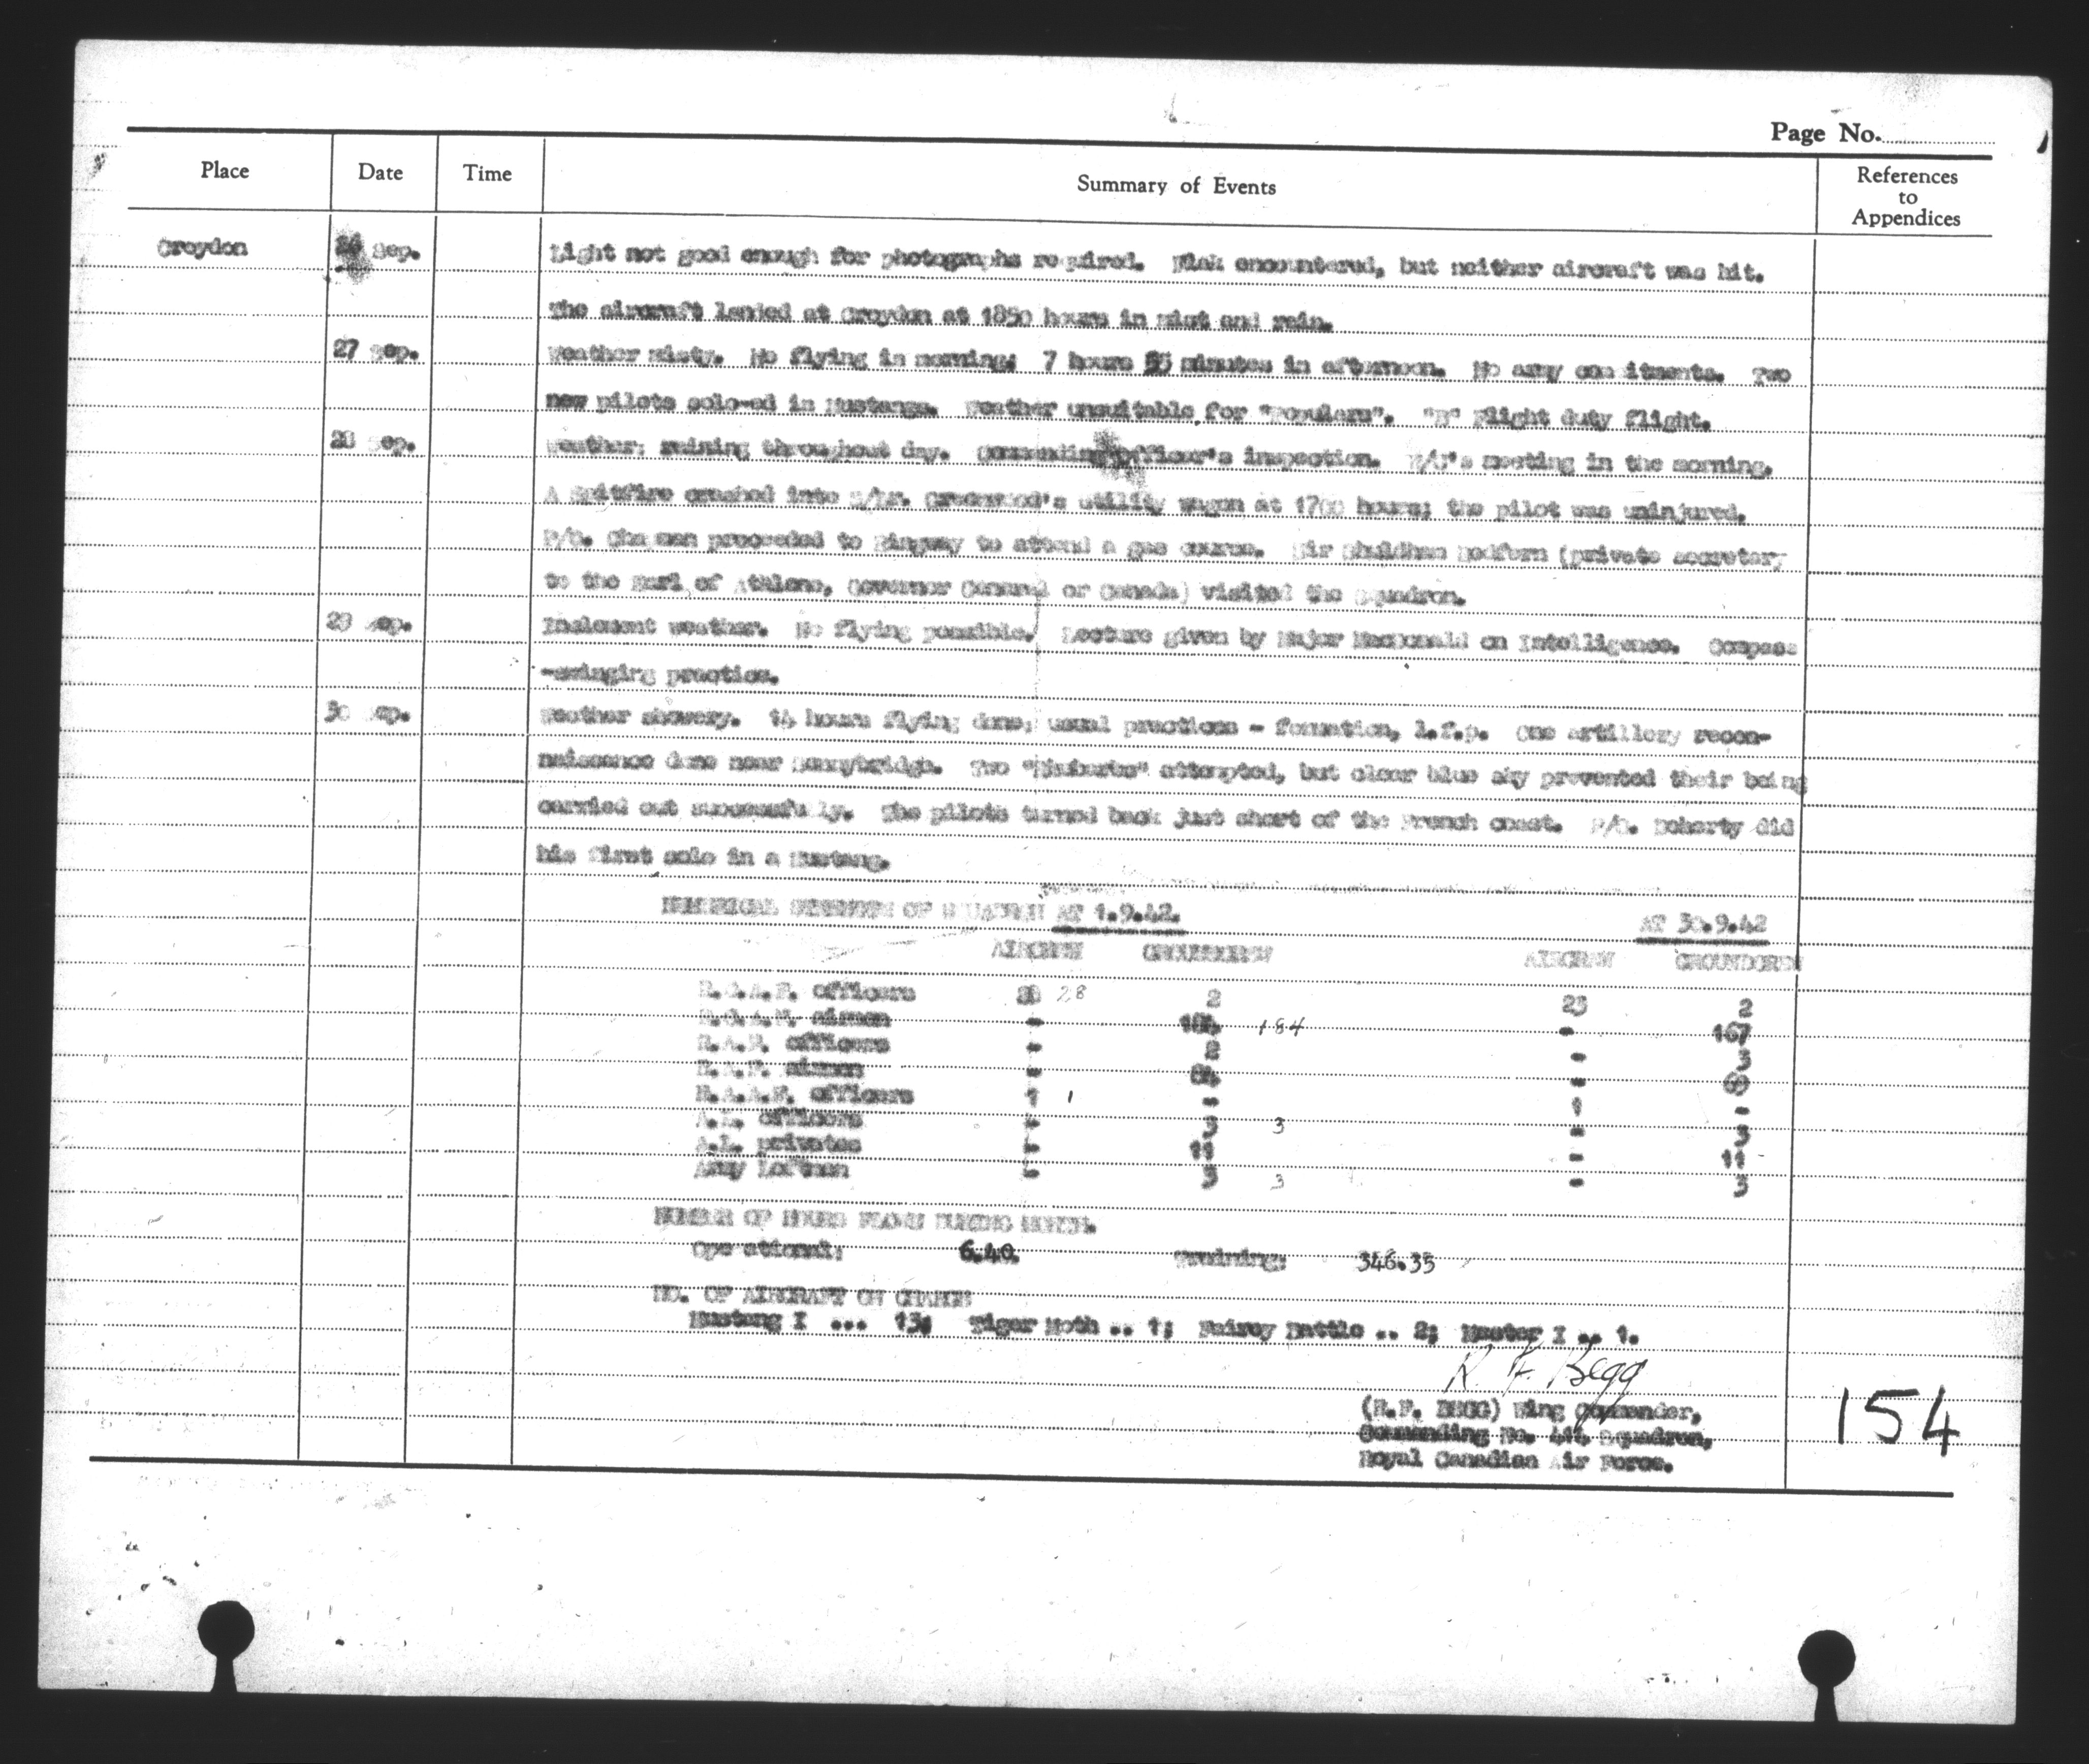 Page No.
Place Date Time Summary of Events References to Appendices
Croydon 26 Sep. Light not good enough for photographs required. Flak encountered, but neither aircraft was hit.
The aircraft landed at Croydon at 1850 hours in mist and rain.
27 Sep. Weather misty. No flying in morning; 7 hours 55 minutes in afternoon. No army commitments. Two
new pilots solo-ed in Mustangs. Weather unsuitable for "Populars". "B" Flight duty flight.
28 Sep. Weather: raining throughout day. Commanding Officer's inspection. meeting in the morning.
A Spitfire crashed into Greenwood's utility wagon at 1700 hours; the pilot was uninjured.
P/O. Chapman proceeded to Ringway to attend a gas course. Sir Shuldham Redfern (private secretary
to the Earl of Athlone, Governor General of Canada) visited the Squadron.
29 Sep. Inclement weather. No flying possible. Lecture given by Major Macdonald on Intelligence. Compass
-swinging practice.
30 Sep. Weather showery. 14 hours flying done; usual practices - formation, l.f.p. One artillery recon-
naissance done near Sennybridge. Two "Rhubarbs" attempted, but clear blue sky prevented their being
carried out successfully. The pilots turned back just short of the French coast. P/O. Doherty did
his first solo in a Mustang.
NUMERICAL STRENGTH OF SQUADRON AT 1.9.42. AT 30.9.42
AIRCREW GROUNDCREW AIRCREW GROUNDCREW
R.C.A.F. officers 28 28 2 23 2
R.C.A.F. airmen - 184 184 - 167
R.A.F. officers - 2 - 3
R.A.F. airmen - 64 - 69
R.A.A.F. officers 1 1 - 1 -
A.L. officers - 3 3 - 3
A.L. privates - 11 - 11
Army - 3 3 - 3
NUMBER OF HOURS FLOWN DURING MONTH.
Operational: 6.40. Training: 346.35
NO. OF AIRCRAFT ON CHARGE
Mustang I ... 13; Tiger Moth .. 1; Fairey Battle .. 2; Master I .. 1.
R F. Begg
(R.F. BEGG) Wing Commander,
Commanding No. 414 Squadron,
Royal Canadian Air Force.
154